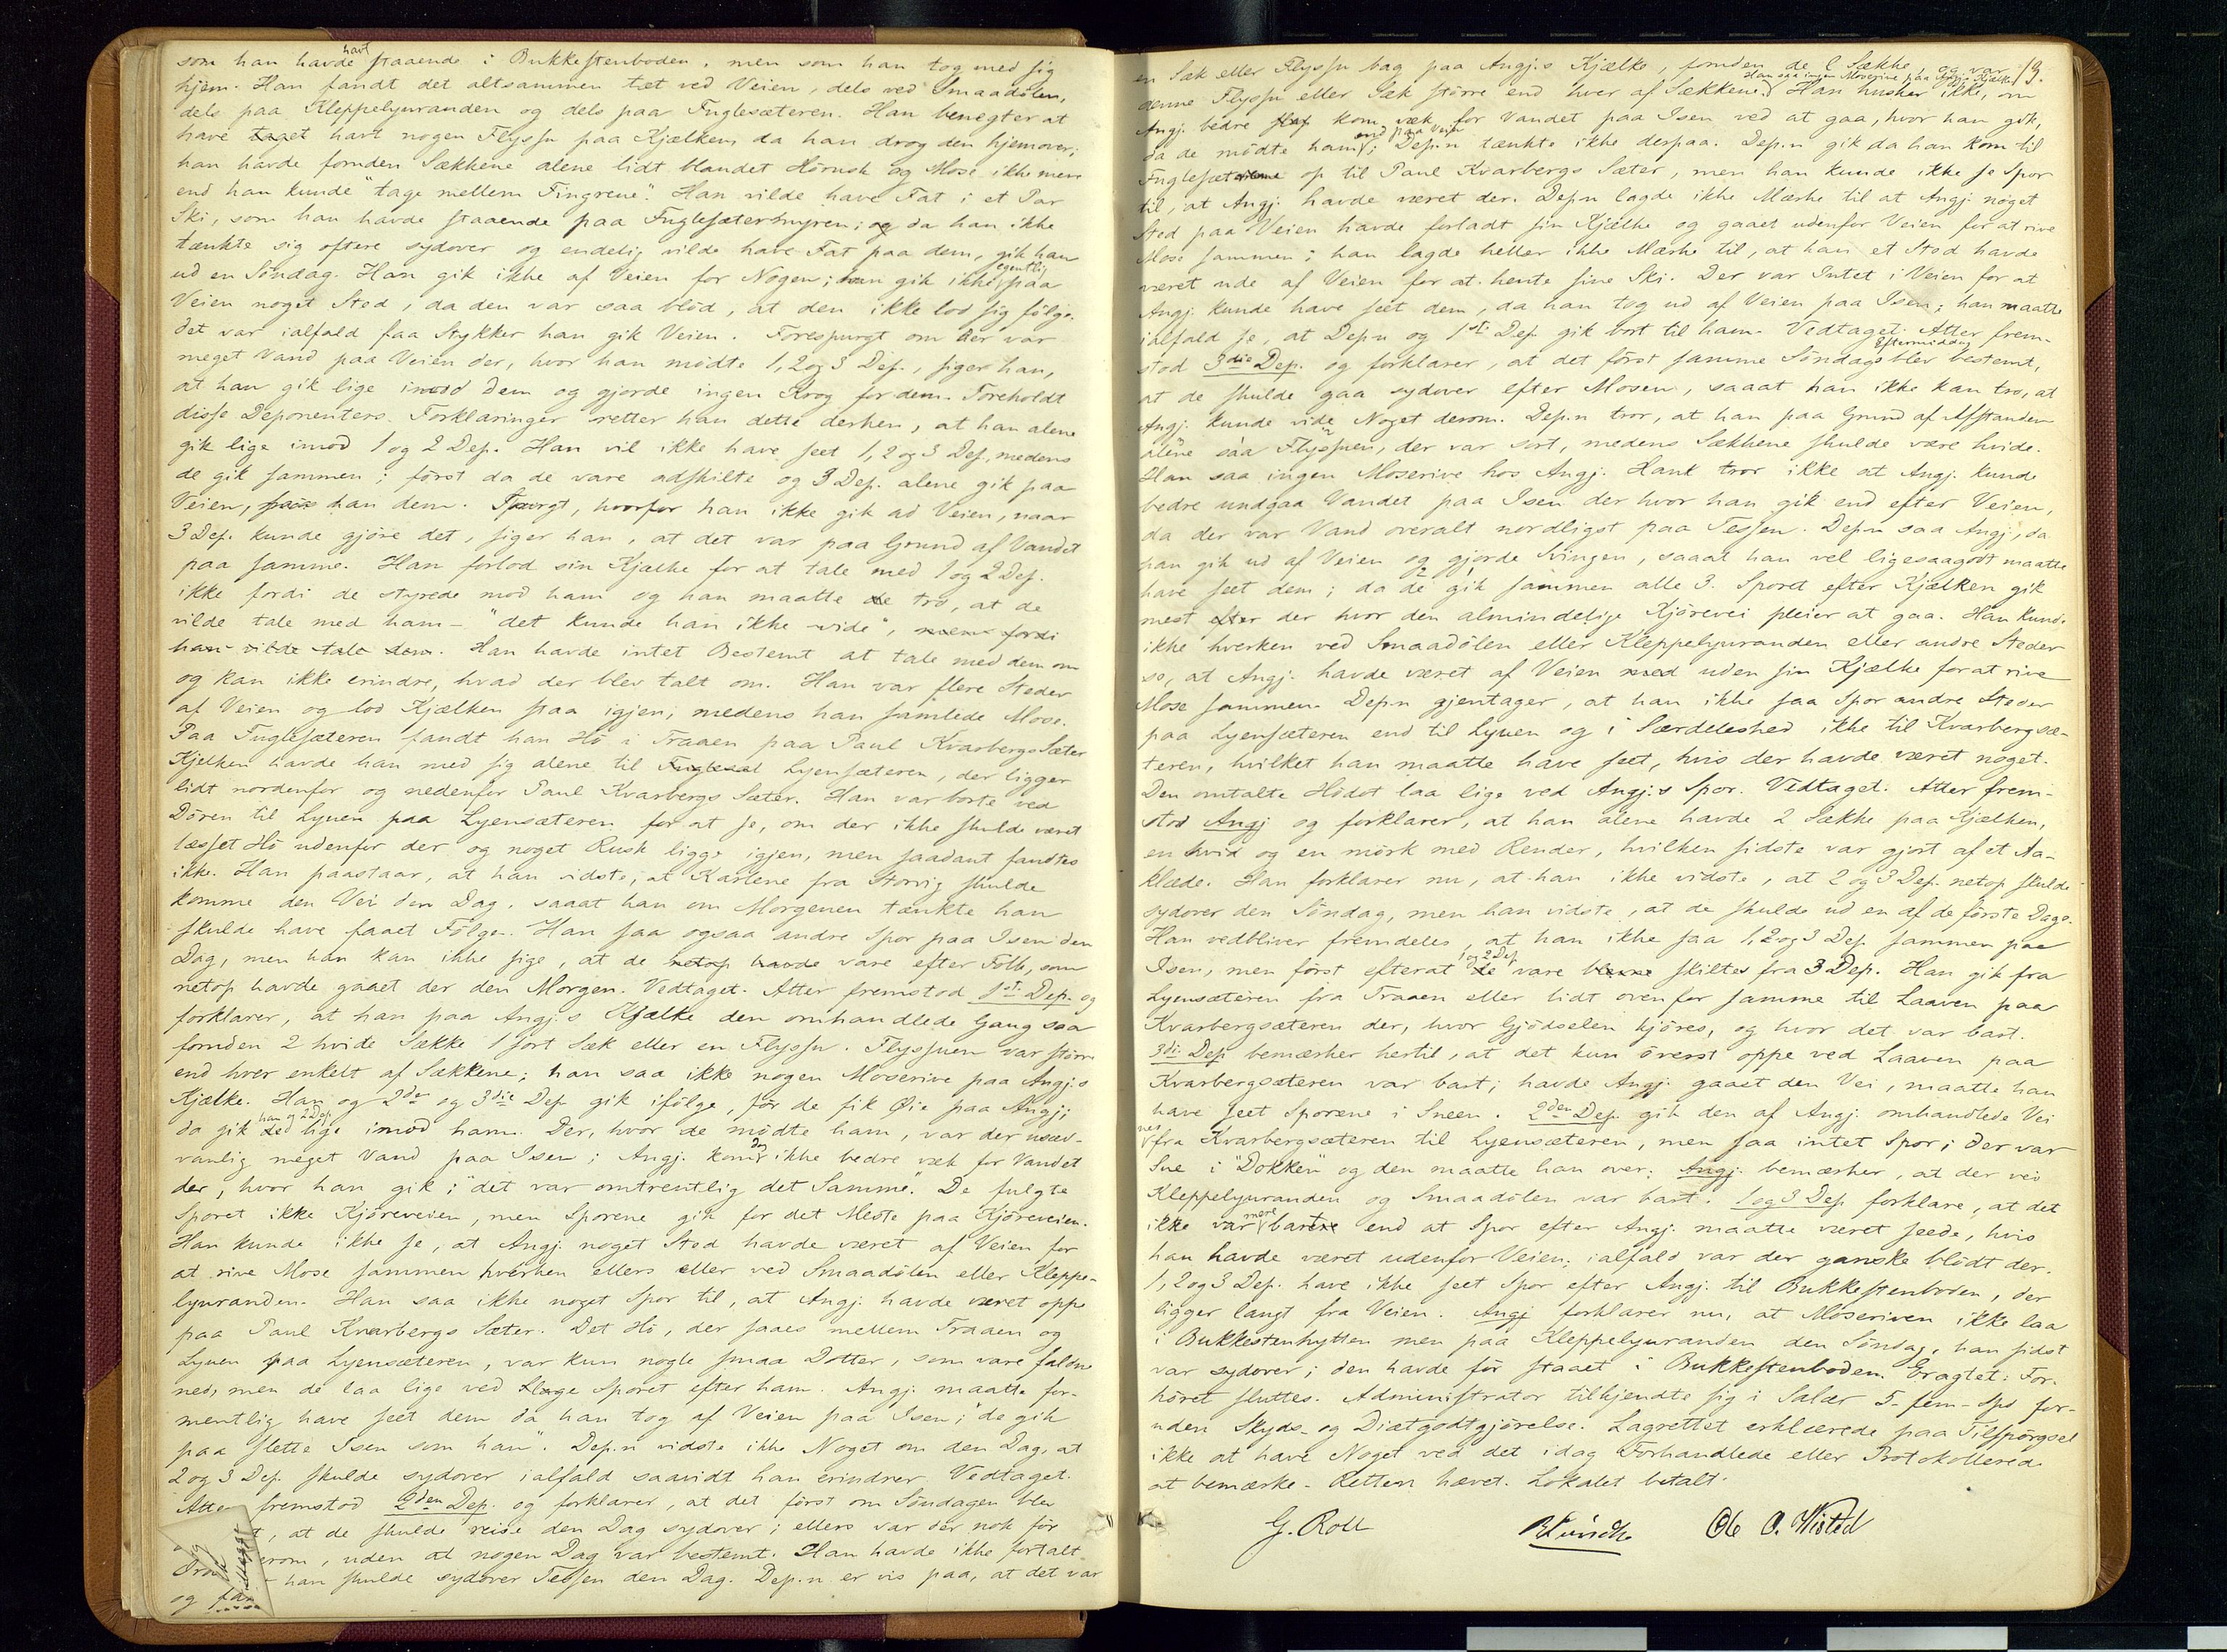 som han havde havt staaende i Bukkestenboden, men som han tog med sig
hjem. Han fandt det altsammen tæt ved Veien, dels ved Smaadölen,
dels paa Kleppelyuranden og dels paa Fuglesæteren. Han benegter at
have taget havt nogen Flyssu paa Kjælken da han drog den hjemover;
han havde foruden Sækkene alene lidt blandet Hörusk og Mose ikke mere
end han kunde "tage mellem Fingrene". Han vilde have Fat i et Par
Ski, som han havde staaende paa Fuglesætermyren; og da han ikke
tænkte sig oftere sydover og endelig vilde have Fat paa dem, gik han
ud en Söndag. Han gik ikke af Veien for Nogen; han gik ikke egentlig paa
Veien noget Sted, da den var saa blöd, at den ikke lod sig fölge.
det var ialfald faa Stykker han gik Veien. Forespurgt om der var
meget Vand paa Veien der, hvor han mödte 1, 2 og 3 Dep., siger han,
at han gik lige imod dem og gjorde ingen Krog for dem. Foreholdt
disse Deponenters Forklaringer retter han dette derhen, at han alene
gik lige imod 1 og 2 Dep. Han vil ikke have seet 1, 2 og 3 Dep., medens
de gik sammen; först da de vare adskilte og 3 Dep. alene gik paa
Veien, saa han dem. Spurgt, hvorfor han ikke gik ad Veien, naar
3 Dep. kunde gjöre det, siger han, at det var paa Grund af Vandet
paa samme. Han forlod sin Kjælke for at tale med 1 og 2 Dep.
ikke fordi de styrede mod ham og han maatte de tro, at de
vilde tale med ham - "det kunde han ikke vide", men fordi
han vilde tale dem. Han havde intet Bestemt at tale med dem om
og kan ikke erindre, hvad der blev talt om. Han var flere Steder
af Veien og lod Kjælken staa igjen, medens han samlede Mose.
Paa Fuglesæteren fandt han Hö i Traaen paa Paul Kvarbergs Sæter
Kjelken havde han med sig alene til Fuglesæt Lyensæteren, der ligger
lidt nordenfor og nedenfor Paul Kvarbergs Sæter. Han var borte ved
Dören til Lyuen paa Lyensæteren for at se, om der ikke skulde været
læsset Hö udenfor der og noget Rusk ligge igjen, men saadant fandtes
ikke. Han paastaar, at han vidste, at Karlene fra Storvig skulde
komme den Vei den Dag, saaat han om Morgenen tænkte han
skulde have faaet Fölge. Han saa ogsaa andre Spor paa Isen den
Dag, men han kan ikke sige, at de netop havde vare efter Folk, som
netop havde gaaet der den Morgen. Vedtaget. Atter fremstod 1ste Dep. og
forklarer, at han paa Angj.s Kjælke den omhandlede Gang saa
foruden 2 hvide Sække 1 sort Sæk eller en Flyssu. Flyssuen var större
end hver enkelt af Sækkene; han saa ikke nogen Moserive paa Angj.s
Kjælke. Han og 2den og 3die Dep. gik ifölge, för de fik Øie paa Angj;
da gik han og 2 Dep lige imod ham. Der, hvor de mödte ham, var der usæd-
vanlig meget Vand paa Isen; Angj. kom der ikke bedre væk for Vandet
der, hvor han gik; "det var omtrentlig det Samme". De fulgte
Sporet ikke Kjöreveien, men Sporene gik for det Meste paa Kjöreveien.
Han kunde ikke se, at Angj. noget Sted havde været af Veien for
at rive Mose sammen hverken ellers eller ved Smaadölen eller Kleppe-
lyuranden. Han saa ikke noget Spor til, at Angj. havde været oppe
paa Paul Kvarbergs Sæter. Det Hö, der saaes mellem Traaen og
Lyuen paa Lyensæteren, var kun nogle smaa Dotter, som vare faldne
ned, men de laa lige ved Sporet efter ham. Angj. maatte for-
mentlig have seet dem da han tog af Veien paa Isen; "de gik
paa slette Isen som han". Dep.n vidste ikke Noget om den Dag, at
2 og 3 Dep. skulde sydover ialfald saavidt han erindrer. Vedtaget.
Atter fremstod 2den Dep. og forklarer, at det först om Söndagen blev
t, at de skulde reise den Dag sydover; ellers var der nok för
erom, uden at nogen Dag var bestemt. Han havde ikke fortalt
han skulde sydover Tessen den Dag. Dep.n er vis paa, at det var
19.
en Sæk eller Flyssu bag paa Angj.s Kjælke, foruden de 2 Sække, og var
denne Flyssu eller Sæk större end hver af Sækkene. Han saa ingen Moserive paa Angj.s Kjælke. Han husker ikke, om
Angj. bedre slap kom væk for Vandet paa Isen ved at gaa, hvor han gik,
da de mödte ham, end paa Veien; Dep.n tænkte ikke derpaa. Dep.n gik da han kom til
Fuglesæteren op til Paul Kvarbergs Sæter, men han kunde ikke se Spor
til, at Angj. havde været der. Dep.n lagde ikke Mærke til at Angj. noget
Sted paa Veien havde forladt sin Kjælke og gaaet udenfor Veien for at rive
Mose sammen; han lagde heller ikke Mærke til, at han et Sted havde
været ude af Veien for at hente sine Ski. Der var Intet i Veien for at
Angj. kunde have seet dem, da han tog ud af Veien paa Isen; han maatte
ialfald se, at Dep.n og 1ste Dep. gik bort til ham. Vedtaget. Atter frem-
stod 3die Dep. og forklarer, at det först samme Söndags Eftermiddag blev bestemt,
at de skulde gaa sydover efter Mosen, saaat han ikke kan tro, at
Angj. kunde vide Noget derom. Dep.n tror, at han paa Grund af Afstanden
alene saa Flyssuen, der var sort, medens Sækkene skulde være hvide.
Han saa ingen Moserive hos Angj. Han tror ikke at Angj. kunde
bedre undgaa Vandet paa Isen der hvor han gik end efter Veien,
da der var Vand overalt nordligst paa Tessen. Dep.n saa Angj., da
han gik ud af Veien og gjorde Svingen, saaat han vel ligesaagodt maatte
have seet dem; da de gik sammen alle 3. Sporet efter Kjælken gik
mest efter der hvor den almindelige Kjörevei pleier at gaa. Han kunde
ikke hverken ved Smaadölen eller Kleppelyuranden eller andre Steder
se, at Angj. havde været af Veien med uden sin Kjælke for at rive
Mose sammen. Dep.n gjentager, at han ikke saa Spor andre Steder
paa Lyensæteren end til Lyuen og i Særdeleshed ikke til Kvarbergsæ-
teren, hvilket han maatte have seet, hvis der havde været noget.
Den omtalte Hödot laa lige ved Angj.s Spor. Vedtaget. Atter frem-
stod Angj og forklarer, at han alene havde 2 Sække paa Kjælken,
en hvid og en mörk med Render, hvilken sidste var gjort af et Aa-
klæde. Han forklarer nu, at han ikke vidste, at 2 og 3 Dep. netop skulde
sydover den Söndag, men han vidste, at de skulde ud en af de förste Dage.
Han vedbliver fremdeles, at han ikke saa 1, 2 og 3 Dep sammen paa
Isen, men först efterat 1 og 2 Dep vare skiltes fra 3 Dep. Han gik fra
Lyensæteren fra Traaen eller lidt ovenfor samme til Laaven paa
Kvarbergsæteren der, hvor Gjödselen kjöres, og hvor det var bart.
3die Dep bemærker hertil, at det kun överst oppe ved Laaven paa
Kvarbergsæteren var bart; havde Angj. gaaet den Vei, maatte han
have seet Sporene i Sneen. 2den Dep. gik den af Angj. omhandlede Vei
ned fra Kvarbergsæteren til Lyensæteren, men saa intet Spor; der var
Sne i "Dokken" og den maatte han over. Angj. bemærker, at der ved
Kleppelyuranden og Smaadölen var bart. 1 og 3 Dep forklare, at det
ikke var mere bart end at Spor efter Angj. maatte været seede, hvis
han havde været udenfor Veien, ialfald var der ganske blödt der.
1, 2 og 3 Dep. have ikke seet Spor efter Angj. til Bukkestenboden, der
ligger langt fra Veien. Angj forklarer nu, at Moseriven ikke laa
i Bukkestenhytten men paa Kleppelyuranden den Söndag, han sidst
var sydover; den havde för staaet i Bukkestenboden. Eragtet: For-
höret sluttes. Administrator tilkjendte sig i Salær 5 - fem - Spd for-
uden Skyds- og Diætgodtgjörelse. Lagrettet erklærede paa Tilspörgsel
ikke at have Noget ved det idag Forhandlede eller Protokollerede
at bemærke. Retten hævet. Lokalet betalt.
G. Roll Ole O. Wisted